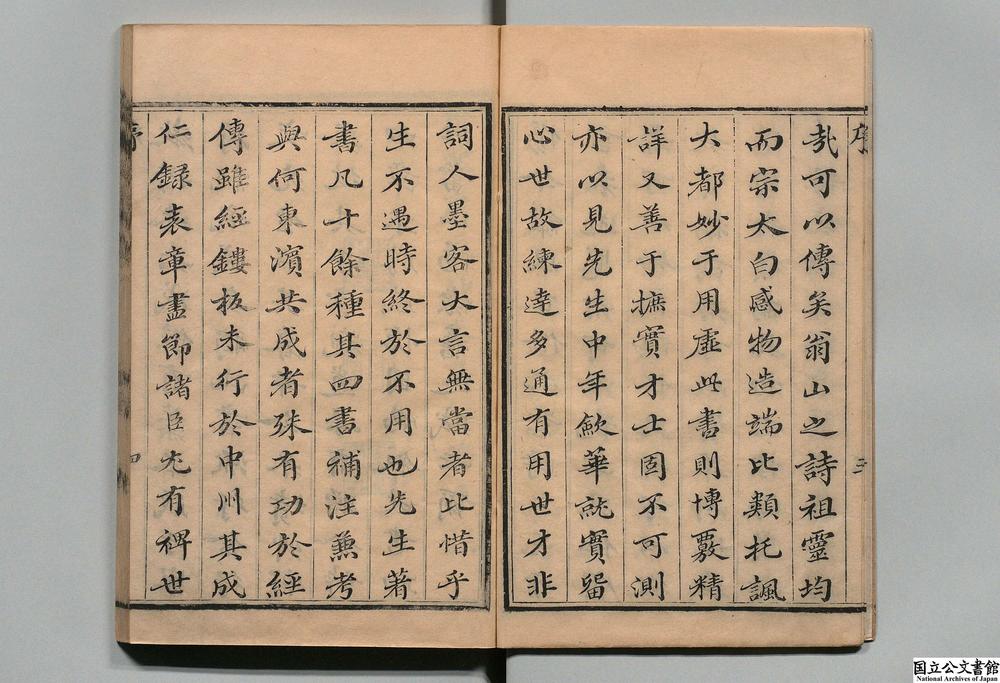 序
三
哉可以傳矣翁山之詩祖靈均
而宗太白感物造端比類托諷
大都妙于用虛此書則博覈精
詳又善于摭實才士固不可測
亦以見先生中年歛華就實留
心世故練達多通有用世才非
詞人墨客大言無當者比惜乎
生不遇時終於不用也先生著
書凡十餘種其四書補注蕪考
與何東濱共成者殊有功於經
傳雖經鏤板未行於中州其成
仁録表章盡節諸臣尤有裨世
序
四
国立公文書館
National Archives of Japan